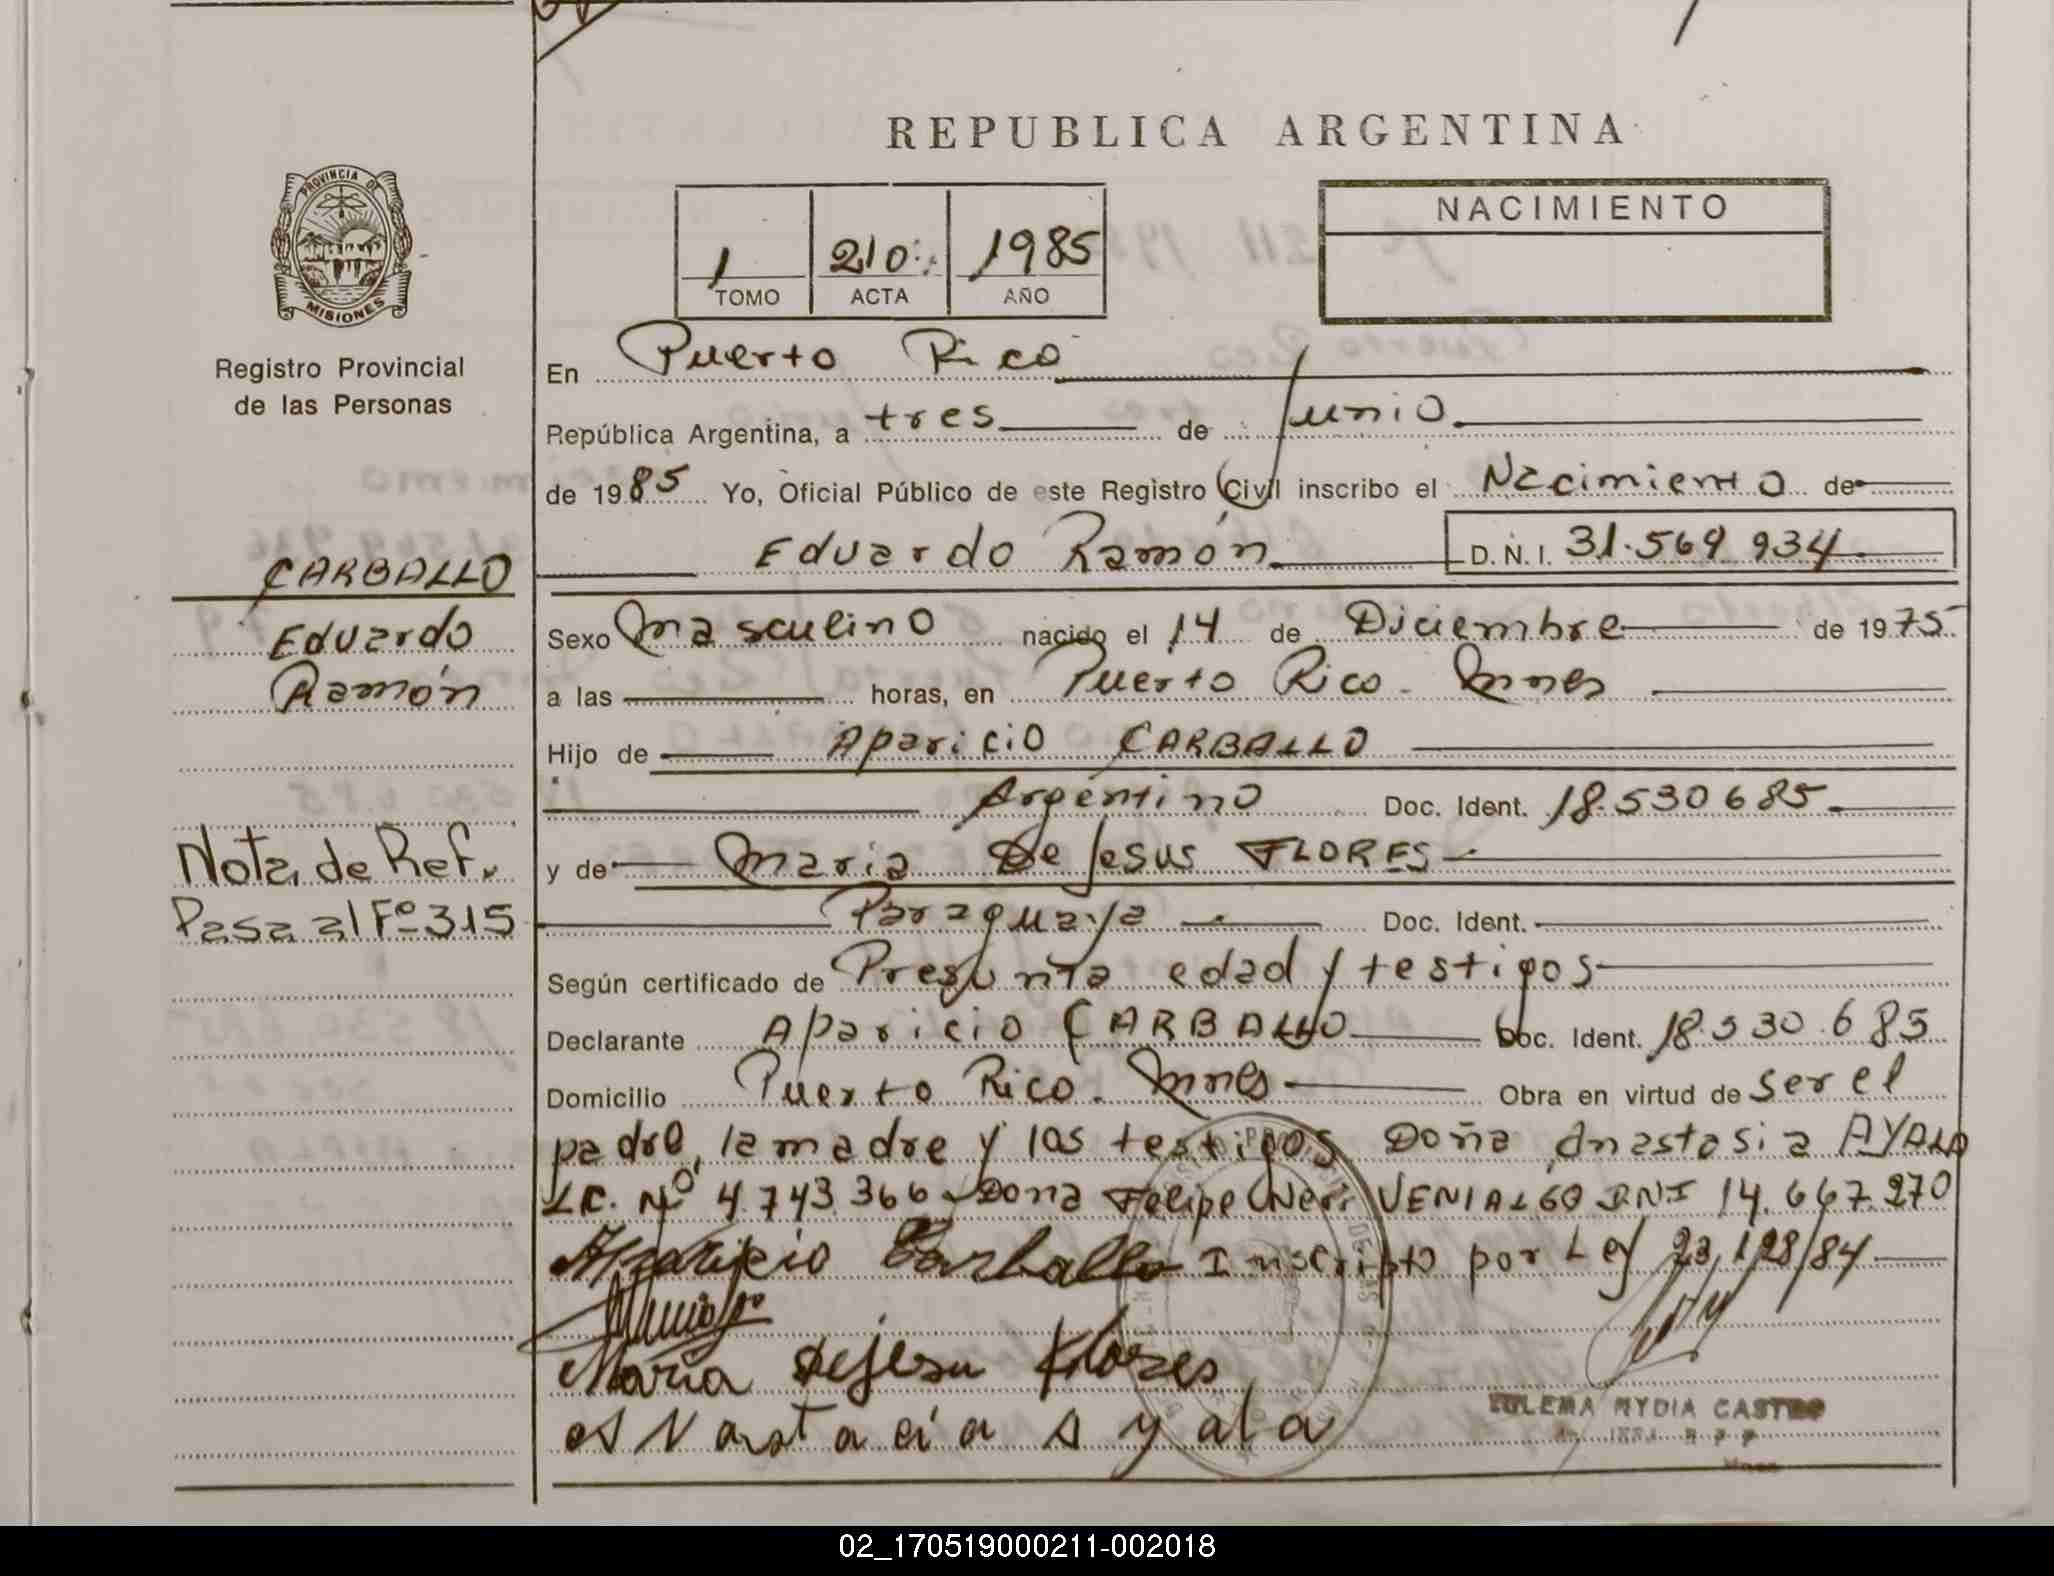 REPUBLICA ARGENTINA
PROVINCIA DE
MISIONES
Registro Provincial
de las Personas
1 210 1985
TOMO ACTA AÑO
NACIMIENTO
En Puerto Rico
República Argentina, a tres de Junio
de 1985 Yo, Oficial Público de este Registro Civil inscribo el Nacimiento de
Eduardo Ramón D.N.I. 31.569 934
CARBALLO
Eduardo
Ramón
Sexo Masculino nacido el 14 de Diciembre de 1975
a las horas, en Puerto Rico - Mnes
Hijo de Aparicio CARBALLO
Argentino Doc. Ident. 18.530685
y de Maria De Jesus FLORES
Nota de Ref.
Pasa al Fº 315
Paraguaya Doc. Ident.
Según certificado de Presunta edad y testigos
Declarante Aparicio CARBALLO Doc. Ident. 18.530.685
Domicilio Puerto Rico. Mnes Obra en virtud de ser el
padre, la madre y los testigos Doña Anastasia AYALA
L.C. Nº 4.743.366 Dona Felipe Neri VENIALGO DNI 14.667.270
Aparicio Carballo Inscripto por Ley 23,128/84
Maria Dejesu Flores
ANastacia Ayala
ZULEMA MYDIA CASTRO
02_170519000211-002018